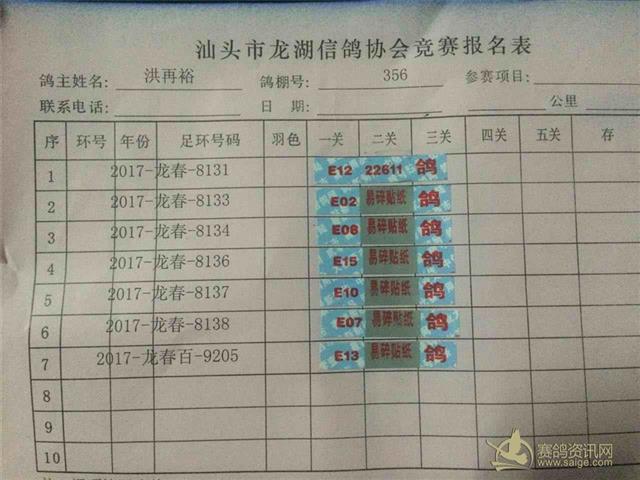 汕头市龙湖信鸽协会竞赛报名表
鸽主姓名: 洪再裕 鸽棚号: 356 参赛项目:
联系电话: 日 期: 公里
序 环号 年份 足环号码 羽色 一关 二关 三关 四关 五关 存
1 2017-龙春-8131 E12 22611 鸽
2 2017-龙春-8133 E02 易碎贴纸 鸽
3 2017-龙春-8134 E08 易碎贴纸 鸽
4 2017-龙春-8136 E15 易碎贴纸 鸽
5 2017-龙春-8137 E10 易碎贴纸 鸽
6 2017-龙春-8138 E07 易碎贴纸 鸽
7 2017-龙春百-9205 E13 易碎贴纸 鸽
8
9
10
赛鸽资讯网
www.saige.com